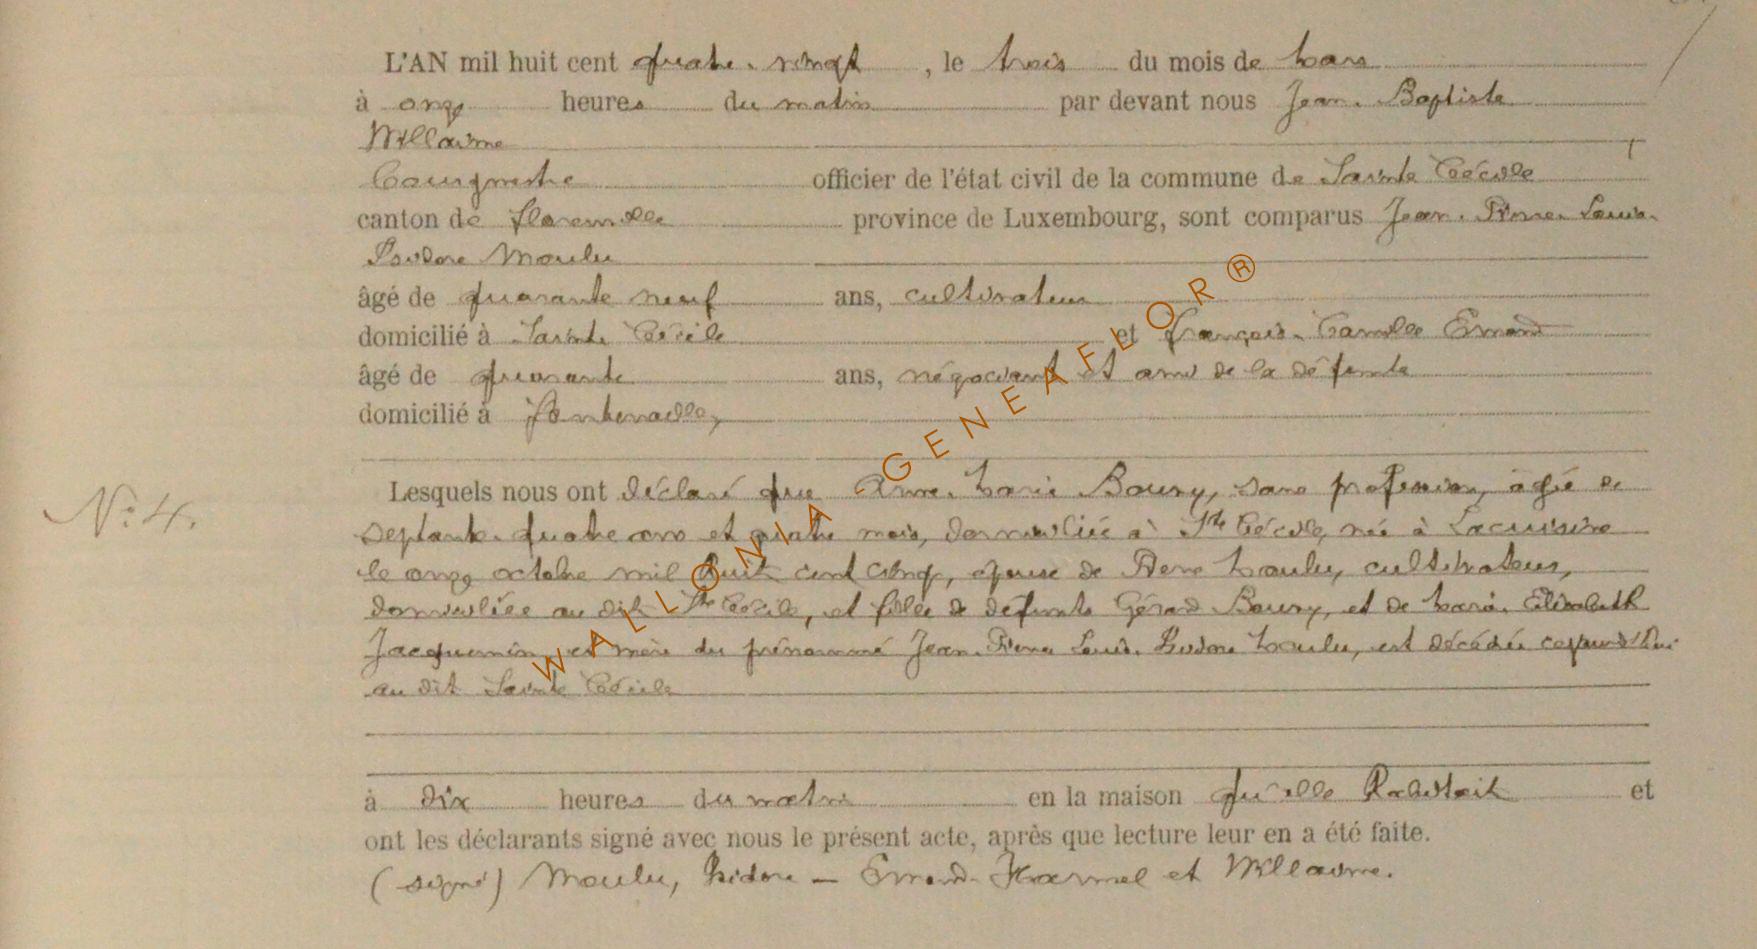 L'AN mil huit cent quatre-vingt, le trois du mois de Mars
à onze heures du matin par devant nous Jean-Baptiste
Willaime
Bourgmestre officier de l'état civil de la commune de Sainte Cécile
canton de Florenville province de Luxembourg, sont comparus Jean-Pierre-Louis-
Isidore Moulu
âgé de quarante neuf ans, cultivateur
domicilié à Sainte Cécile et François-Camille Emond
âgé de quarante ans, négociant et ami de la défunte
domicilié à Fontenoille,
Lesquels nous ont déclaré que Anne-Marie Boury, sans profession, âgée de
N° 4.
septante-quatre ans et quatre mois, domiciliée à Ste Cécile, née à Lacuisine
le onze octobre mil huit cent cinq, épouse de Pierre Moulu, cultivateur,
domiciliée au dit Ste Cécile, et fille de défunts Gérard Boury, et de Marie-Elisabeth
Jacquemin, et mère du prénommé Jean-Pierre-Louis-Isidore Moulu, est décédée cejourd'hui
au dit Sainte Cécile
à dix heures du matin en la maison qu'elle habitait et
ont les déclarants signé avec nous le présent acte, après que lecture leur en a été faite.
(signé) Moulu, Isidore — Emond- et Willaime.
WALLONIA GENEAFLOR®